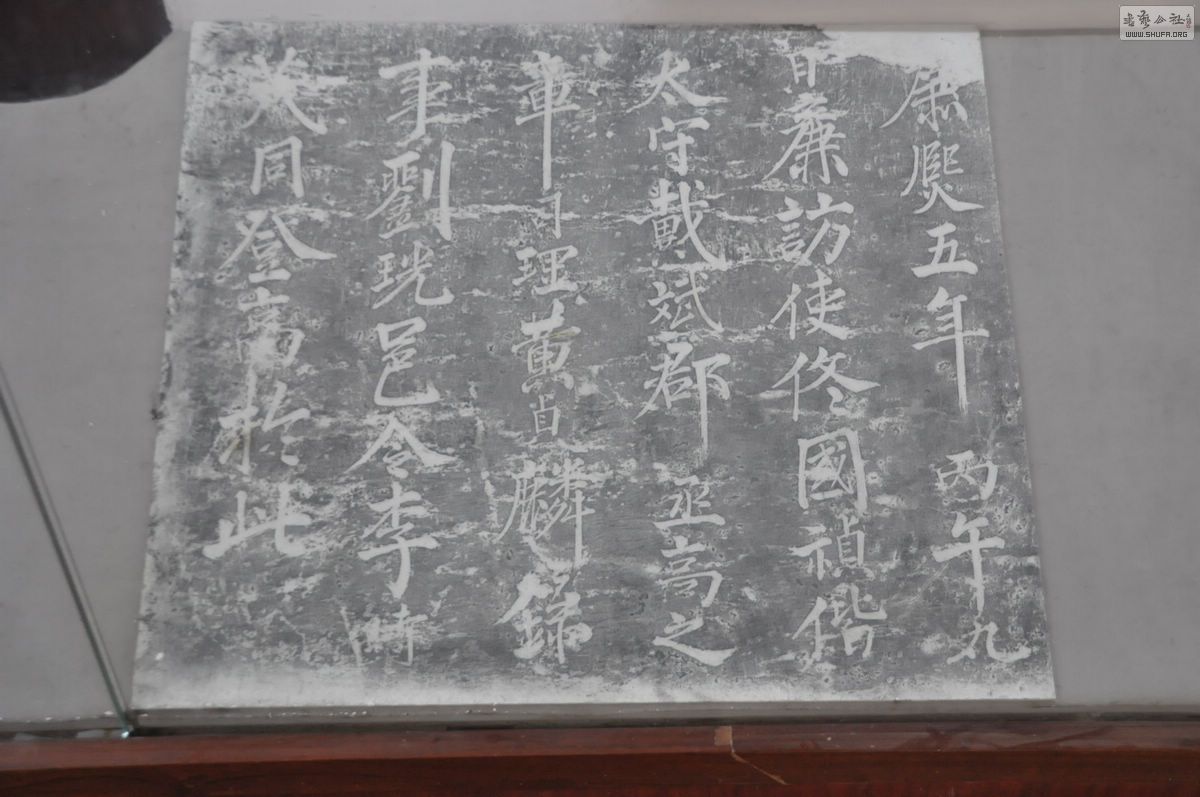 康熙五年丙午九
日廉訪使佟國禎偕
太守戴斌郡丞高之
車司理黃貞麟錄
事劉珖邑令李時
茂同登高於此
書藝公社
WWW.SHUFA.ORG